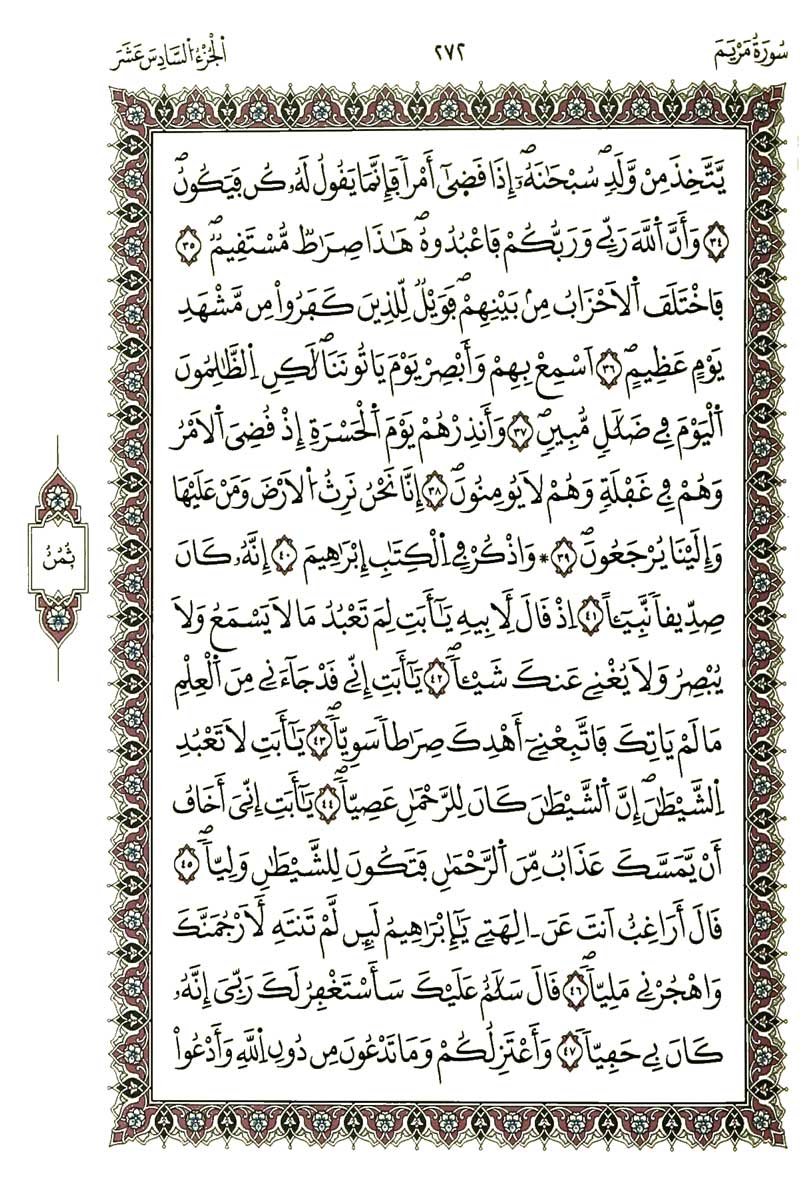 سُورَةُ مَرْيَمَ ٢٧٢ اَلْجُزْءُ السَّادِسَ عَشَرَ
يَّتَّخِذَ مِنْ وَّلَدٖۖ سُبْحَٰنَهُۥٓۖ إِذَا قَضَىٰٓ أَمْراٗ فَإِنَّمَا يَقُولُ لَهُۥ كُن فَيَكُونُۖ
٣٤ وَأَنَّ اَ۬للَّهَ رَبِّے وَرَبُّكُمْ فَاعْبُدُوهُۖ هَٰذَا صِرَٰطٞ مُّسْتَقِيمٞۖ ٣٥
فَاخْتَلَفَ اَ۬لَاحْزَابُ مِنۢ بَيْنِهِمْۖ فَوَيْلٞ لِّلذِينَ كَفَرُواْ مِن مَّشْهَدِ
يَوْمٍ عَظِيمٍۖ ٣٦ اَسْمِعْ بِهِمْ وَأَبْصِرْ يَوْمَ يَاتُونَنَاۖ لَٰكِنِ اِ۬لظَّٰلِمُونَ
اَ۬لْيَوْمَ فِے ضَلَٰلٖ مُّبِينٖۖ ٣٧ وَأَنذِرْهُمْ يَوْمَ اَ۬لْحَسْرَةِ إِذْ قُضِيَ اَ۬لَامْرُ
وَهُمْ فِے غَفْلَةٖ وَهُمْ لَا يُومِنُونَۖ ٣٨ إِنَّا نَحْنُ نَرِثُ اُ۬لَارْضَ وَمَنْ عَلَيْهَا
وَإِلَيْنَا يُرْجَعُونَۖ ٣٩ * وَاذْكُرْ فِے اِ۬لْكِتَٰبِ إِبْرَٰهِيمَ ٤٠ إِنَّهُۥ كَانَ
صِدِّيقاٗ نَّبِيٓـٔاً ٤١ اِذْ قَالَ لِأَبِيهِ يَٰٓأَبَتِ لِمَ تَعْبُدُ مَا لَا يَسْمَعُ وَلَا
يُبْصِرُ وَلَا يُغْنِے عَنكَ شَيْـٔاٗۖ ٤٢ يَٰٓأَبَتِ إِنِّے قَدْ جَآءَنِے مِنَ اَ۬لْعِلْمِ
مَا لَمْ يَاتِكَ فَاتَّبِعْنِےٓ أَهْدِكَ صِرَٰطاٗ سَوِيّاٗۖ ٤٣ يَٰٓأَبَتِ لَا تَعْبُدِ
اِ۬لشَّيْطَٰنَۖ إِنَّ اَ۬لشَّيْطَٰنَ كَانَ لِلرَّحْمَٰنِ عَصِيّاٗۖ ٤٤ يَٰٓأَبَتِ إِنِّيَ أَخَافُ
أَنْ يَّمَسَّكَ عَذَابٞ مِّنَ اَ۬لرَّحْمَٰنِ فَتَكُونَ لِلشَّيْطَٰنِ وَلِيّاٗۖ ٤٥
قَالَ أَرَاغِبٌ اَنتَ عَنَ اٰلِهَتِے يَٰٓإِبْرَٰهِيمُ لَئِن لَّمْ تَنتَهِ لَأَرْجُمَنَّكَ
وَاهْجُرْنِے مَلِيّاٗۖ ٤٦ قَالَ سَلَٰمٌ عَلَيْكَ سَأَسْتَغْفِرُ لَكَ رَبِّيَ إِنَّهُۥ
كَانَ بِے حَفِيّاٗۖ ٤٧ وَأَعْتَزِلُكُمْ وَمَا تَدْعُونَ مِن دُونِ اِ۬للَّهِ وَأَدْعُواْ
ثُمُنُ